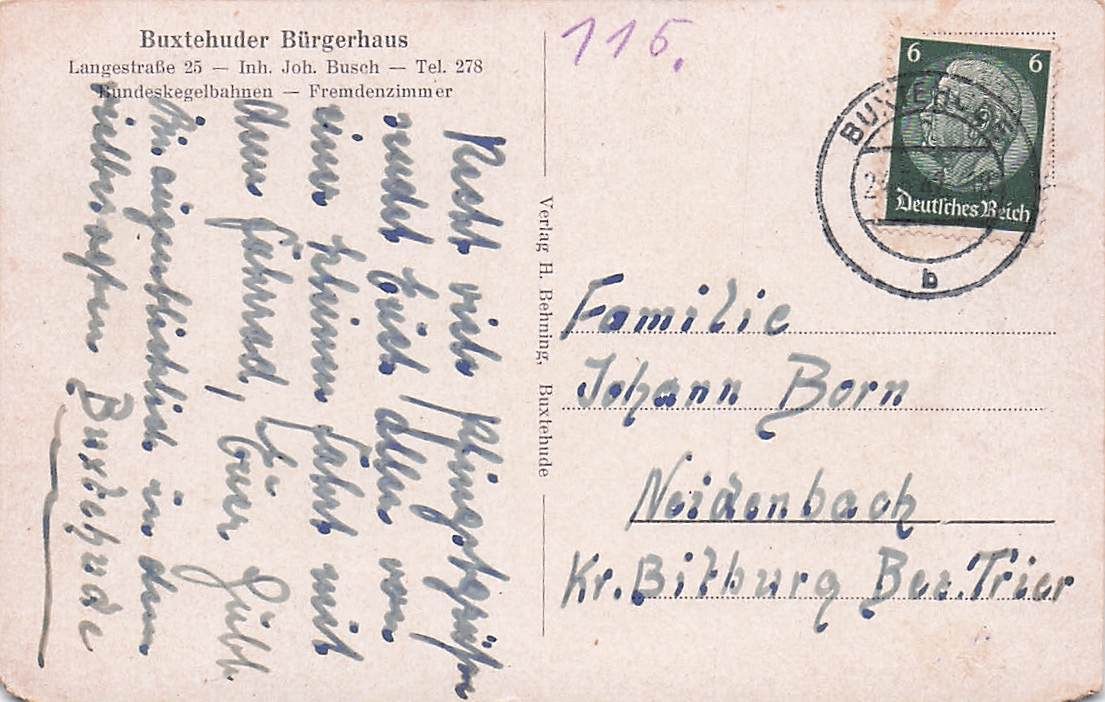 Buxtehuder Bürgerhaus
Langestraße 25 — Inh. Joh. Busch — Tel. 278
Bundeskegelbahnen — Fremdenzimmer
115.
6 6
Deutsches Reich
BUXTEHUDE
b
Verlag H. Behning, Buxtehude
Recht viele Pfingstgrüße
sendet Euch allen von
einer kleinen Fahrt mit
dem Fahrrad, Euer
Bin augenblicklich in dem
vielbesagten Buxtehude
Familie
Johann Born
Neidenbach
Kr. Bitburg Bez. Trier